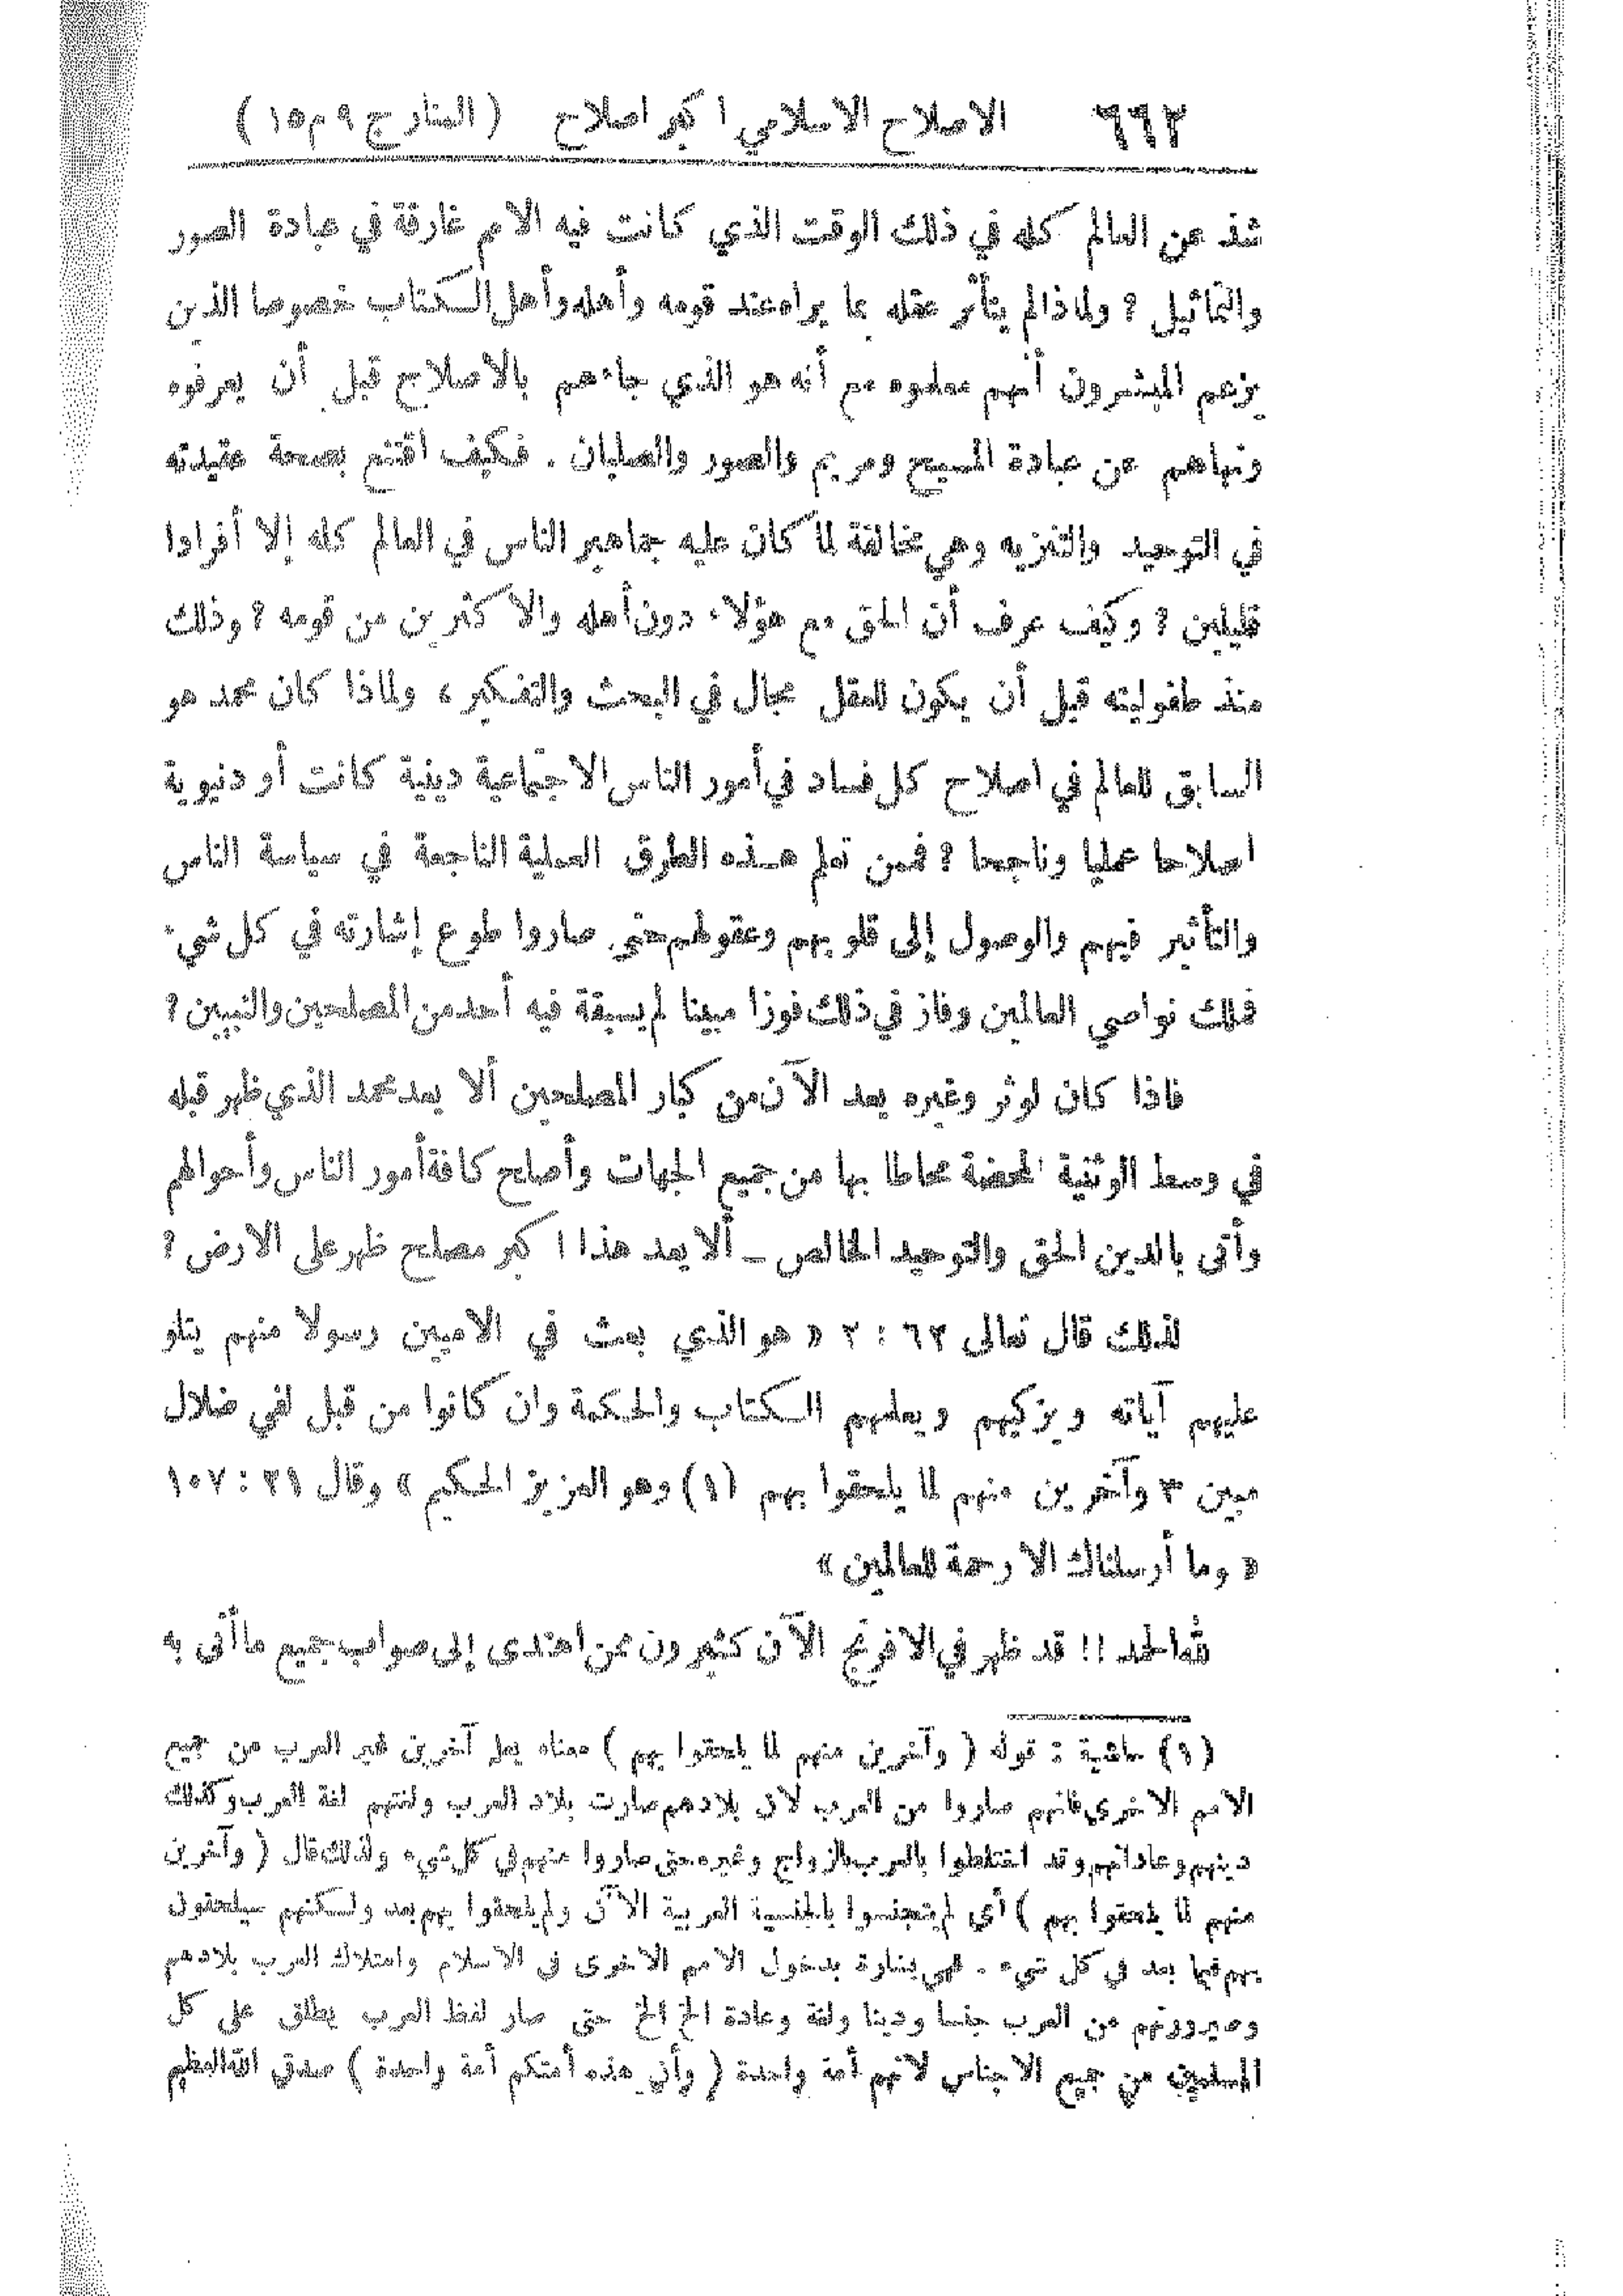 ٦٦٢ الاصلاح الاسلامي اكبر اصلاح ( المنار ج ٩ م ١٥ )
شذ عن العالم كله في ذلك الوقت الذي كانت فيه الامم غارقة في عبادة الصور
والتماثيل ? ولماذا لم يتأثر عقله بما يراه عند قومه وأهله وأهل الكتاب خصوصا الذين
يزعم المبشرون أنهم علموه مع أنه هو الذي جاءهم بالاصلاح قبل أن يعرفوه
ونهاهم عن عبادة المسيح ومريم والصور والصلبان . فكيف اقتنع بصحة عقيدته
في التوحيد والتنزيه وهي مخالفة لما كان عليه جماهير الناس في العالم كله إلا أفرادا
قليلين ? وكيف عرف أن الحق مع هؤلاء دون أهله والاكثرين من قومه ? وذلك
منذ طفوليته قبل أن يكون للعقل مجال في البحث والتفكير ، ولماذا كان محمد هو
السابق للعالم في اصلاح كل فساد في أمور الناس الاجتماعية دينية كانت أو دنيوية
اصلاحا عمليا وناجحا ? فمن تعلم هذه الطرق العملية الناجحة في سياسة الناس
والتأثير فيهم والوصول إلى قلوبهم وعقولهم حتى صاروا طوع إشارته في كل شيء
فملك نواصي العالمين وفاز في ذلك فوزا مبينا لم يسبقة فيه أحد من المصلحين والنبيين ?
فاذا كان لوثر وغيره يعد الآن من كبار المصلحين ألا يعد محمد الذي ظهر قبله
في وسط الوثنية المحضة محاطا بها من جميع الجهات وأصلح كافة أمور الناس وأحوالهم
وأتى بالدين الحق والتوحيد الخالص ــ ألا يعد هذا اكبر مصلح ظهر على الارض ?
لذلك قال تعالى ٦٢ : ٢ « هو الذي بعث في الاميين رسولا منهم يتلو
عليهم آياته ويزكيهم ويعلمهم الكتاب والحكمة وان كانوا من قبل لفي ضلال
مبين ٣ وآخرين منهم لما يلحقوا بهم (١) وهو العزيز الحكيم » وقال ٢١ : ١٠٧
« وما أرسلناك الا رحمة للعالمين »
فلله الحمد !! قد ظهر في الافرنج الآن كثيرون ممن اهتدى إلى صواب جميع ما أتى به
(١) حاشية : قوله ( وآخرين منهم لما يلحقوا بهم ) معناه يعلم آخرين غير العرب من جميع
الامم الاخرى فانهم صاروا من العرب لان بلادهم صارت بلاد العرب ولغتهم لغة العرب وكذلك
دينهم وعاداتهم وقد اختلطوا بالعرب بالزواج وغيره حتى صاروا منهم في كل شيء ولذلك قال ( وآخرين
منهم لما يلحقوا بهم ) أي لم يتجنسوا بالجنسية العربية الآن ولم يلحقوا بهم بعد ولكنهم سيلحقون
بهم فيما بعد في كل شيء . فهي بشارة بدخول الامم الاخرى في الاسلام وامتلاك العرب بلادهم
وصيرورتهم من العرب جنسا ودينا ولغة وعادة الخ الخ حتى صار لفظ العرب يطلق على كل
المسلمين من جميع الاجناس لانهم أمة واحدة ( وأن هذه أمتكم أمة واحدة ) صدق الله العظيم